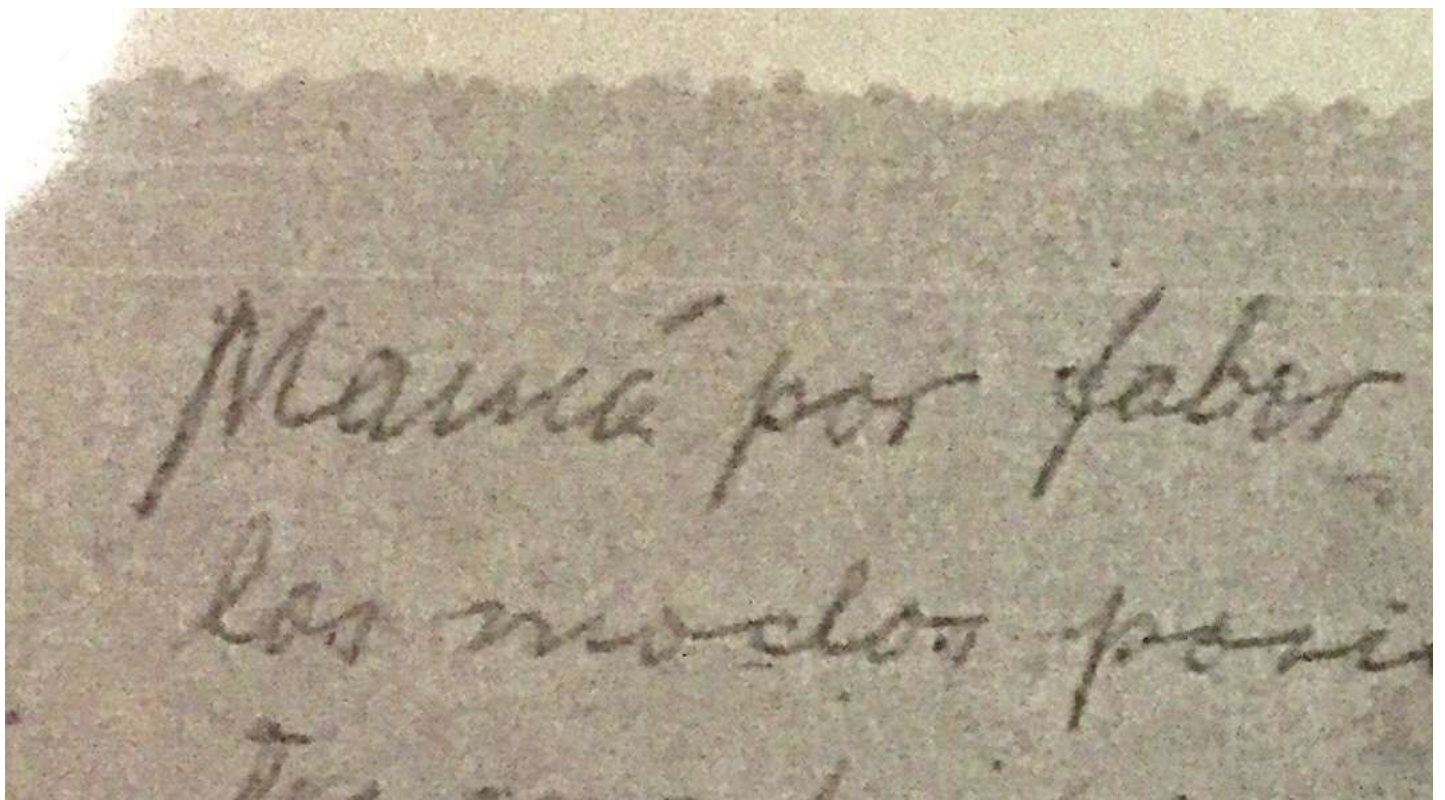 Mamá por fabor
los modos posi